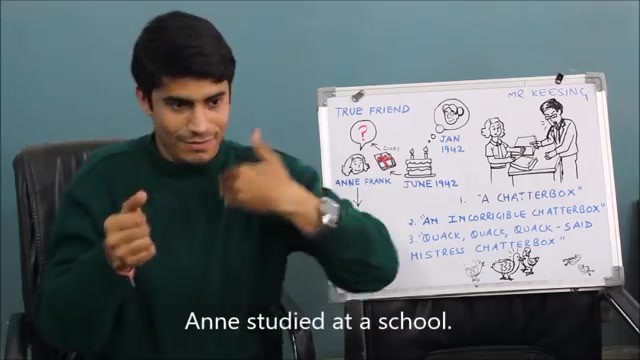 TRUE FRIEND
MR. KEESING
?
DIARY
JAN
1942
ANNE FRANK
JUNE 1942
1. "A CHATTERBOX"
2. "AN INCORRIGIBLE CHATTERBOX"
3. "QUACK, QUACK, QUACK - SAID
MISTRESS CHATTERBOX"
Anne studied at a school.